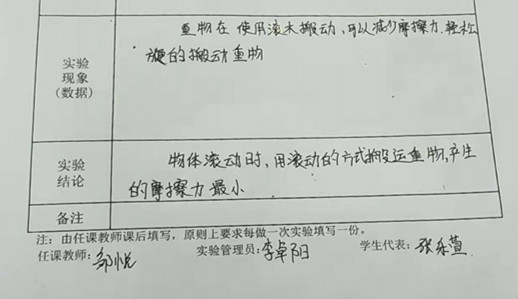 实验
现象
(数据)
重物在使用滚木搬动,可以减少摩擦力.轻松
的搬动重物
实验
结论
物体滚动时,用滚动的方式搬运重物,产生
的摩擦力最小
备注
注:由任课教师课后填写,原则上要求每做一次实验填写一份。
任课教师:邹悦 实验管理员:李卓阳 学生代表:张乐萱